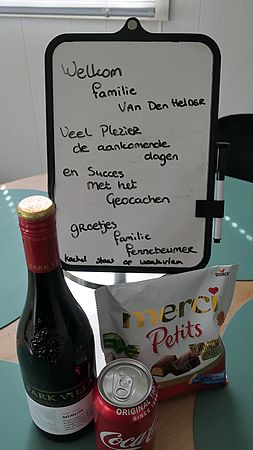 Welkom
familie
Van Den Helder
Veel Plezier
de aankomende
dagen
en Succes
met het
Geocachen
groetjes
familie
Pennebeumer
kachel staat op waakvlam
STORCK
merci
Petits
PARK VILLA
PARK VILLA
MERLOT
ORIGINAL
SINCE
Coca